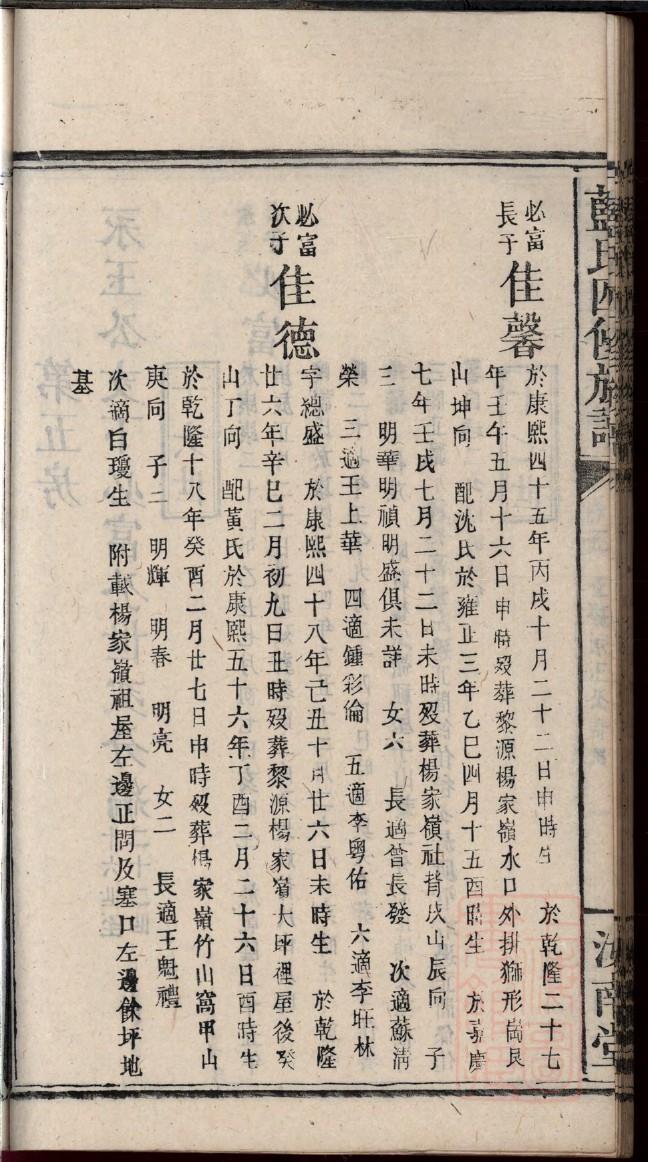 藍氏四修族譜
汝南堂
必富長子 佳馨
於康熙四十五年丙戌十月二十二日申時生 於乾隆二十七
年壬午五月十六日申時歿葬黎源楊家嶺水口外排獅形崗艮
山坤向 配沈氏於雍正三年乙巳四月十五酉時生 於嘉慶
七年壬戌七月二十二日未時歿葬楊家嶺社背戌山辰向 子
三 明華明禎明盛俱未詳 女六 長適曾長發 次適蘇清
榮 三適王上華 四適鍾彩倫 五適李粵佑 六適李旺林
必富次子 佳德
字總盛 於康熙四十八年己丑十月廿六日未時生 於乾隆
廿六年辛巳二月初九日丑時歿葬黎源楊家嶺大坪裡屋後癸
山丁向 配黃氏於康熙五十六年丁酉二月二十六日酉時生
於乾隆十八年癸酉二月廿七日申時歿葬楊家嶺竹山窩甲山
庚向 子二 明輝 明春 明亮 女二 長適王魁禮
次適白瓊生 附載楊家嶺祖屋左邊正間及塞口左邊餘坪地
基